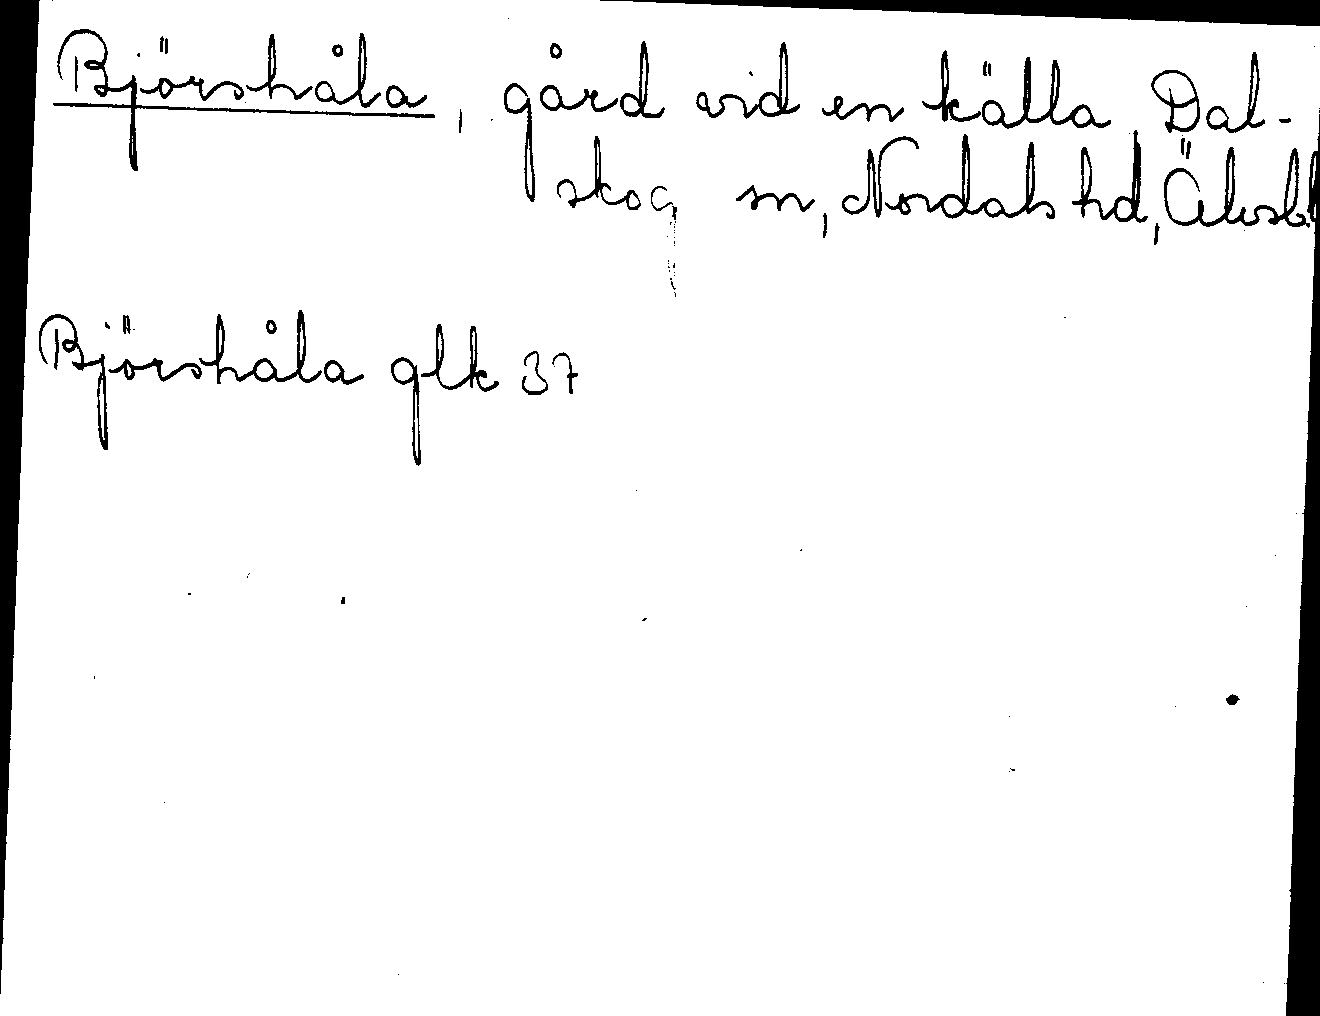 Björshåla, gård vid en källa, Dal-
skog sn, Nordals hd, Älvsb.l
Björshåla glk 37